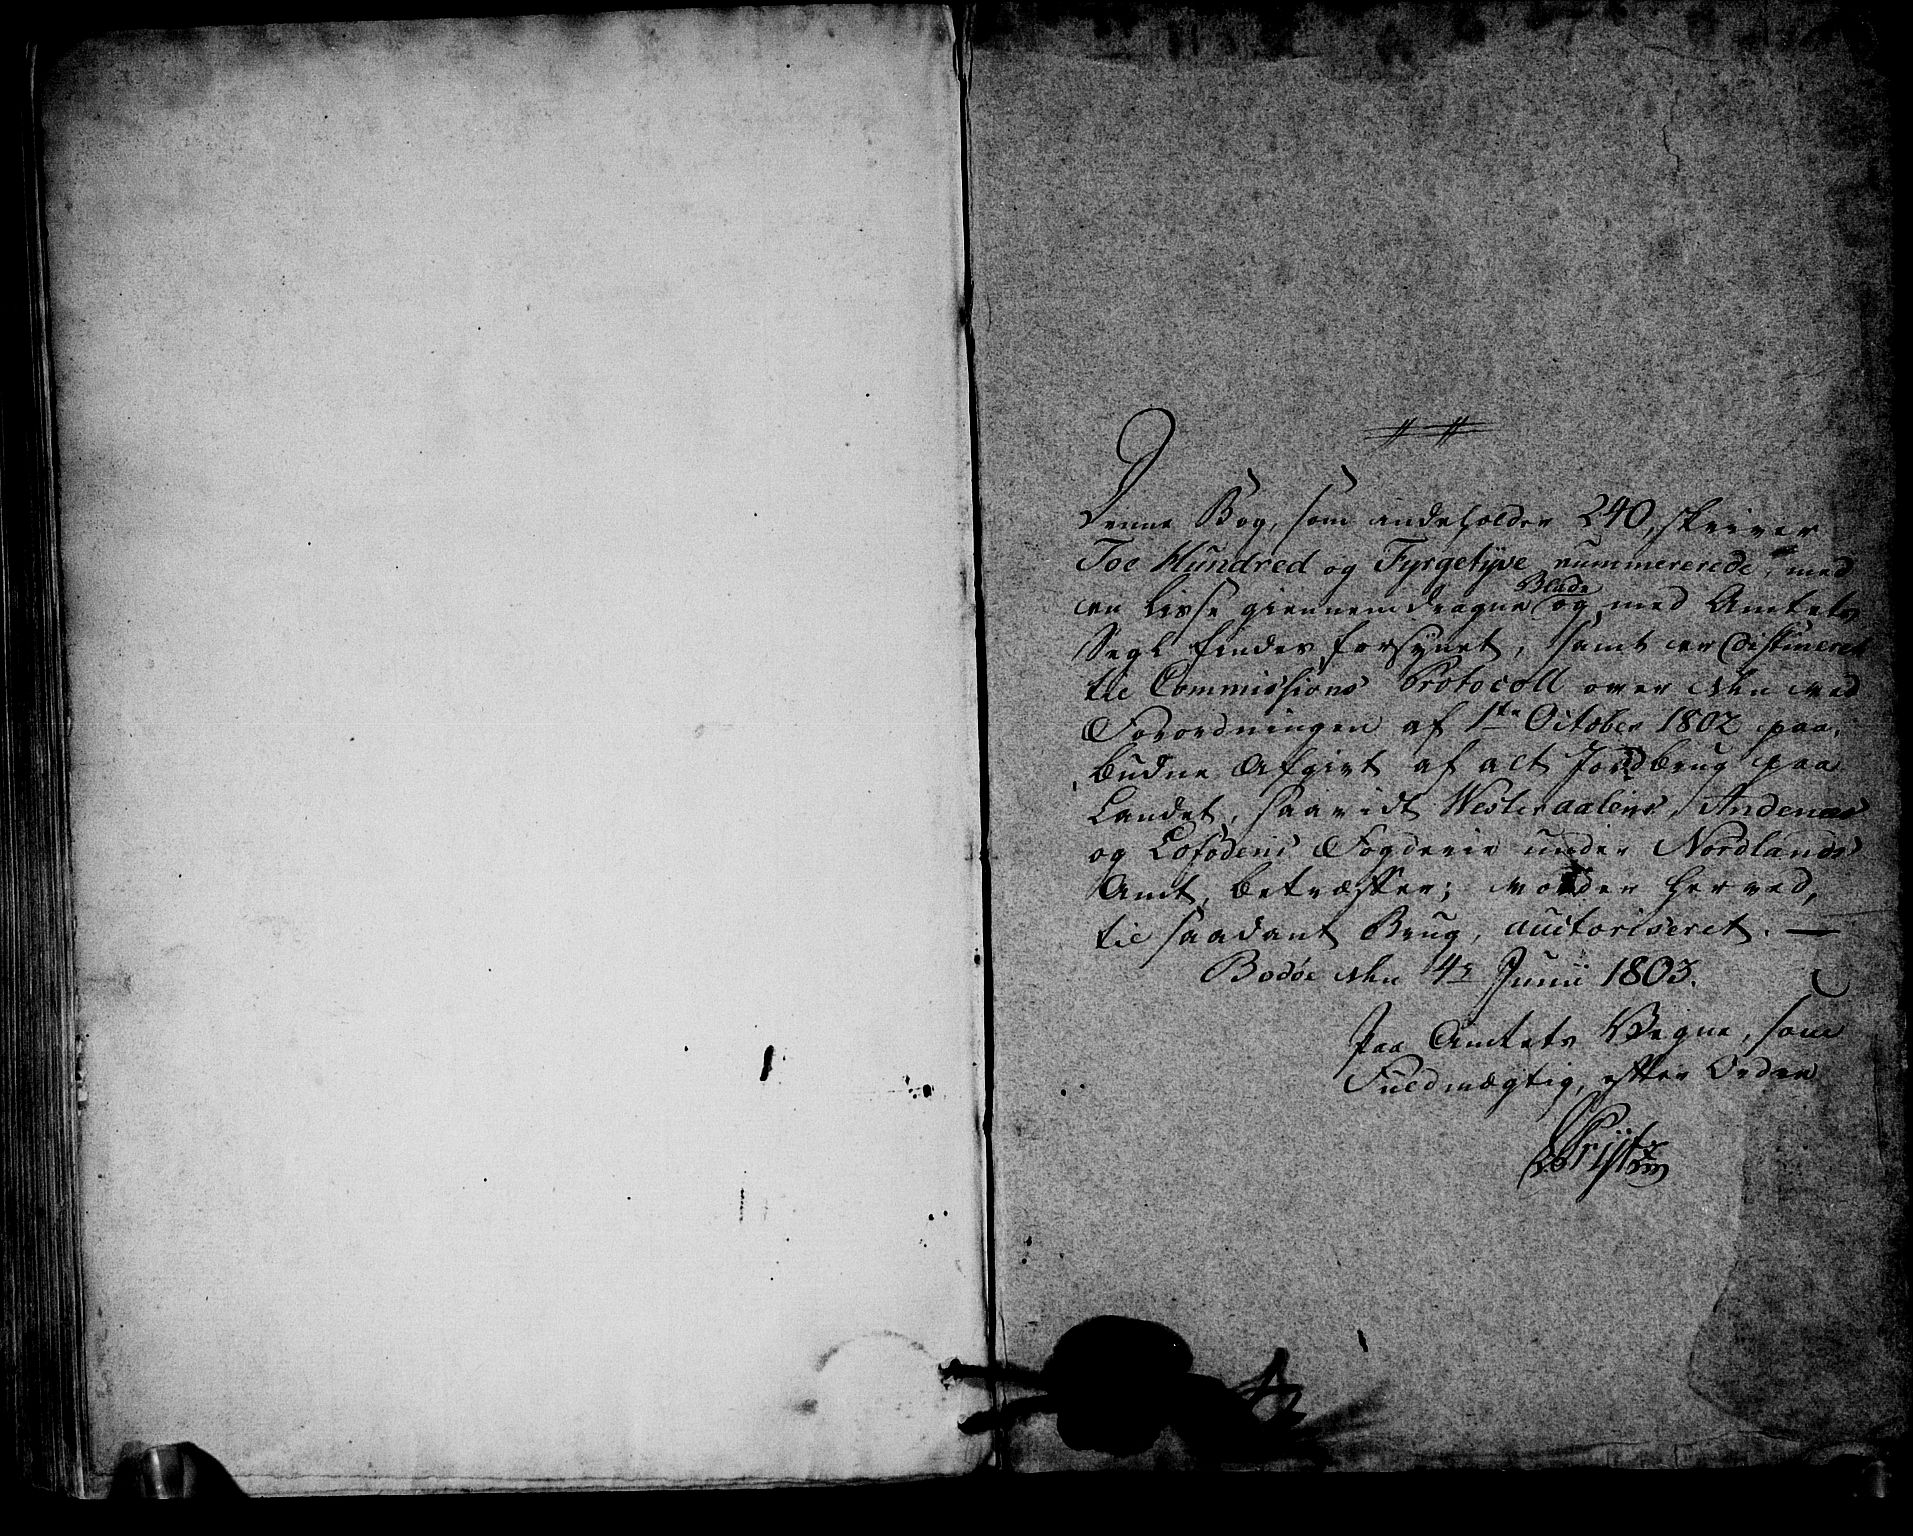 Denne Bog, som indeholder 240, skriver
Toe Hundred og Fyrgetyve nummererede, med
en Lisse giennemdragne Blade og med Amtets
Segl findes forsynet, samt er Distineret
til Commissions Protocoll over den ved
Forordningen af 1te October 1802 paa,
budne Afgivt af alt Jordbrug paa
Landet, saavidt Westeraalens, Andenæs
og Lofodens Fogderie under Nordlands
Amt, betræffer; vorder herved,
til saadant Brug, auctoriseret. —
Bodøe den 4de Junii 1803.
Paa Amtets Vegne, som
Fuldmægtig, efter Ordre